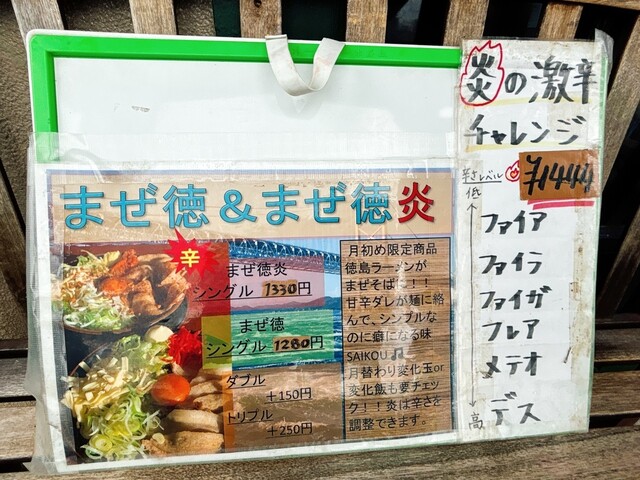 まぜ徳&まぜ徳炎
辛
まぜ徳炎
シングル 1330円
まぜ徳
シングル 1280円
ダブル
+150円
トリプル
+250円
月初め限定商品
徳島ラーメンが
まぜそばに!!
甘辛ダレが麺に絡
んで、シンプルな
のに癖になる味
SAIKOU♫
月替わり変化玉or
変化飯も要チェッ
ク!!炎は辛さを
調整できます。
炎の激辛
チャレンジ
辛さレベル
¥1444
低
ファイア
ファイラ
ファイガ
フレア
メテオ
デス
高